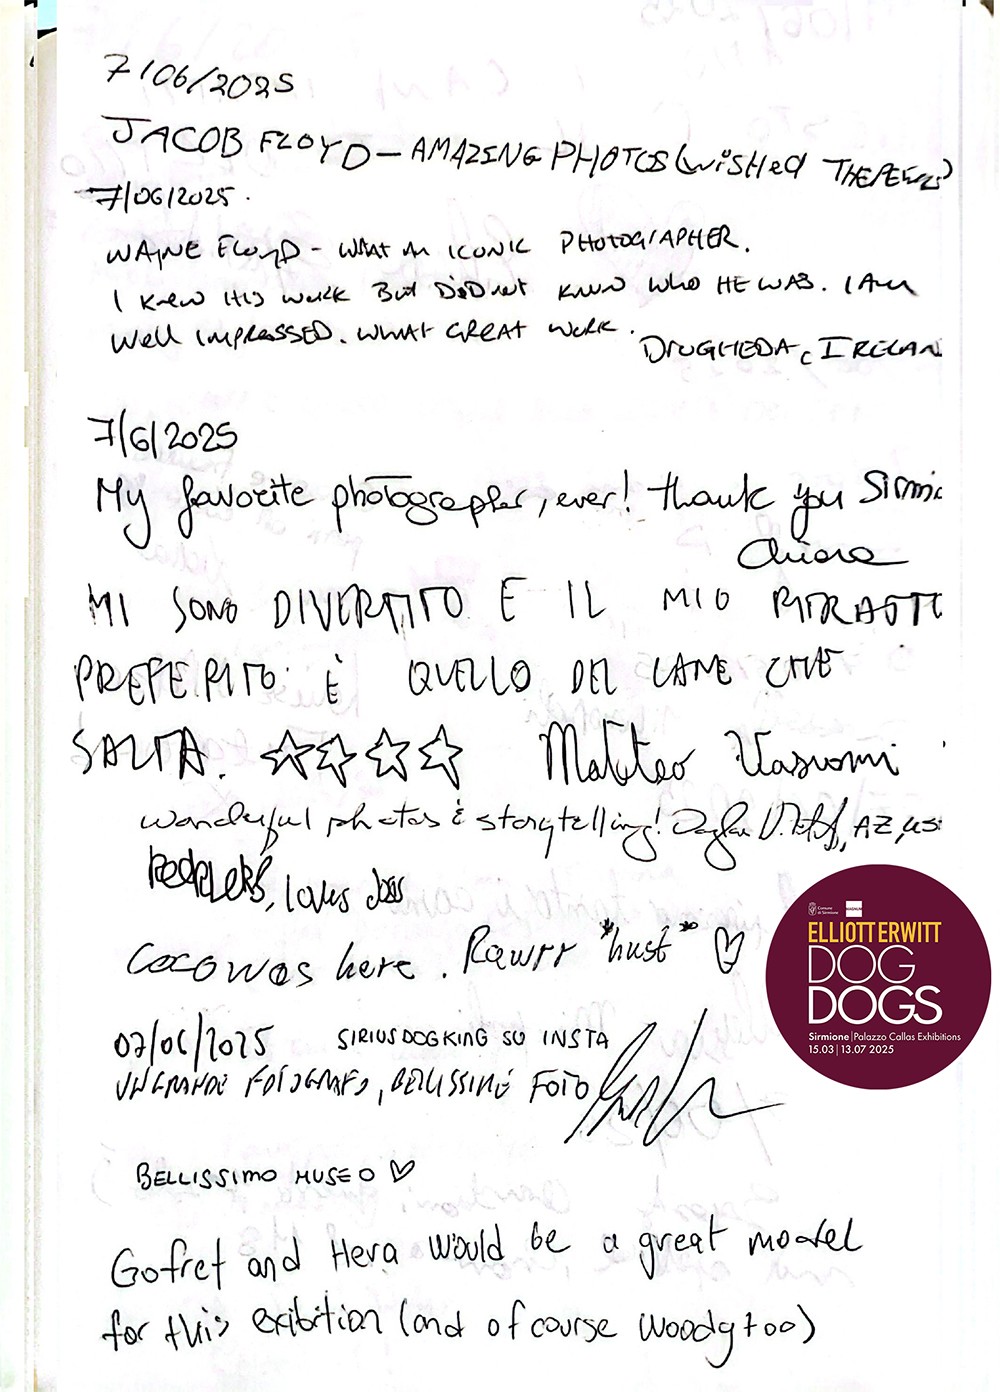 7/06/2025
JACOB FLOYD - AMAZING PHOTOS (wisHed
7/06/2025.
WAYNE FLOYD - WHAT AN ICONIC PHOTOGRAPHER.
I KNEW HIS WORK BUT DID not KNOW WHO HE WAS. I AM
Well IMPRESSED. WHAT GREAT WORK.
DROGHEDA, IRELAN
7/6/2025
My favorite photographer, ever! thank you Sirmi
Chiara
MI SONO DIVERTITO E IL MIO RITRATTO
PREFERITO È QUELLO DEL CANE CHE
SALTA. ☆☆☆☆ Matteo
wonderful photos & storytelling! AZ, US
loves
Coco was here. Rawrr *hust* ♡
07/06/2025 SIRIUSDOGKING SU INSTA
UN GRANDE FOTOGRAFO, BELLISSIME FOTO
BELLISSIMO MUSEO ♡
Gofret and Hera would be a great model
for this exibition (and of course Woody too)
Comune di Sirmione
MAGNUM
ELLIOTT ERWITT
DOG
DOGS
Sirmione | Palazzo Callas Exhibitions
15.03 | 13.07 2025